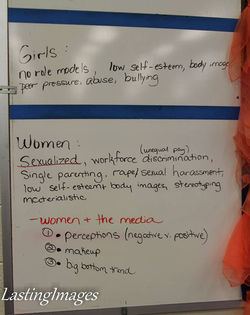 Girls :
no role models, low self-esteem, body image
peer pressure, abuse, bullying
Women :
(unequal pay)
Sexualized, workforce discrimination,
Single parenting, rape/sexual harassment,
low self-esteem + body images, stereotyping
materialistic.
- women + the media
① • perceptions (negative v. positive)
② • makeup
③ • big bottom trend
LastingImages